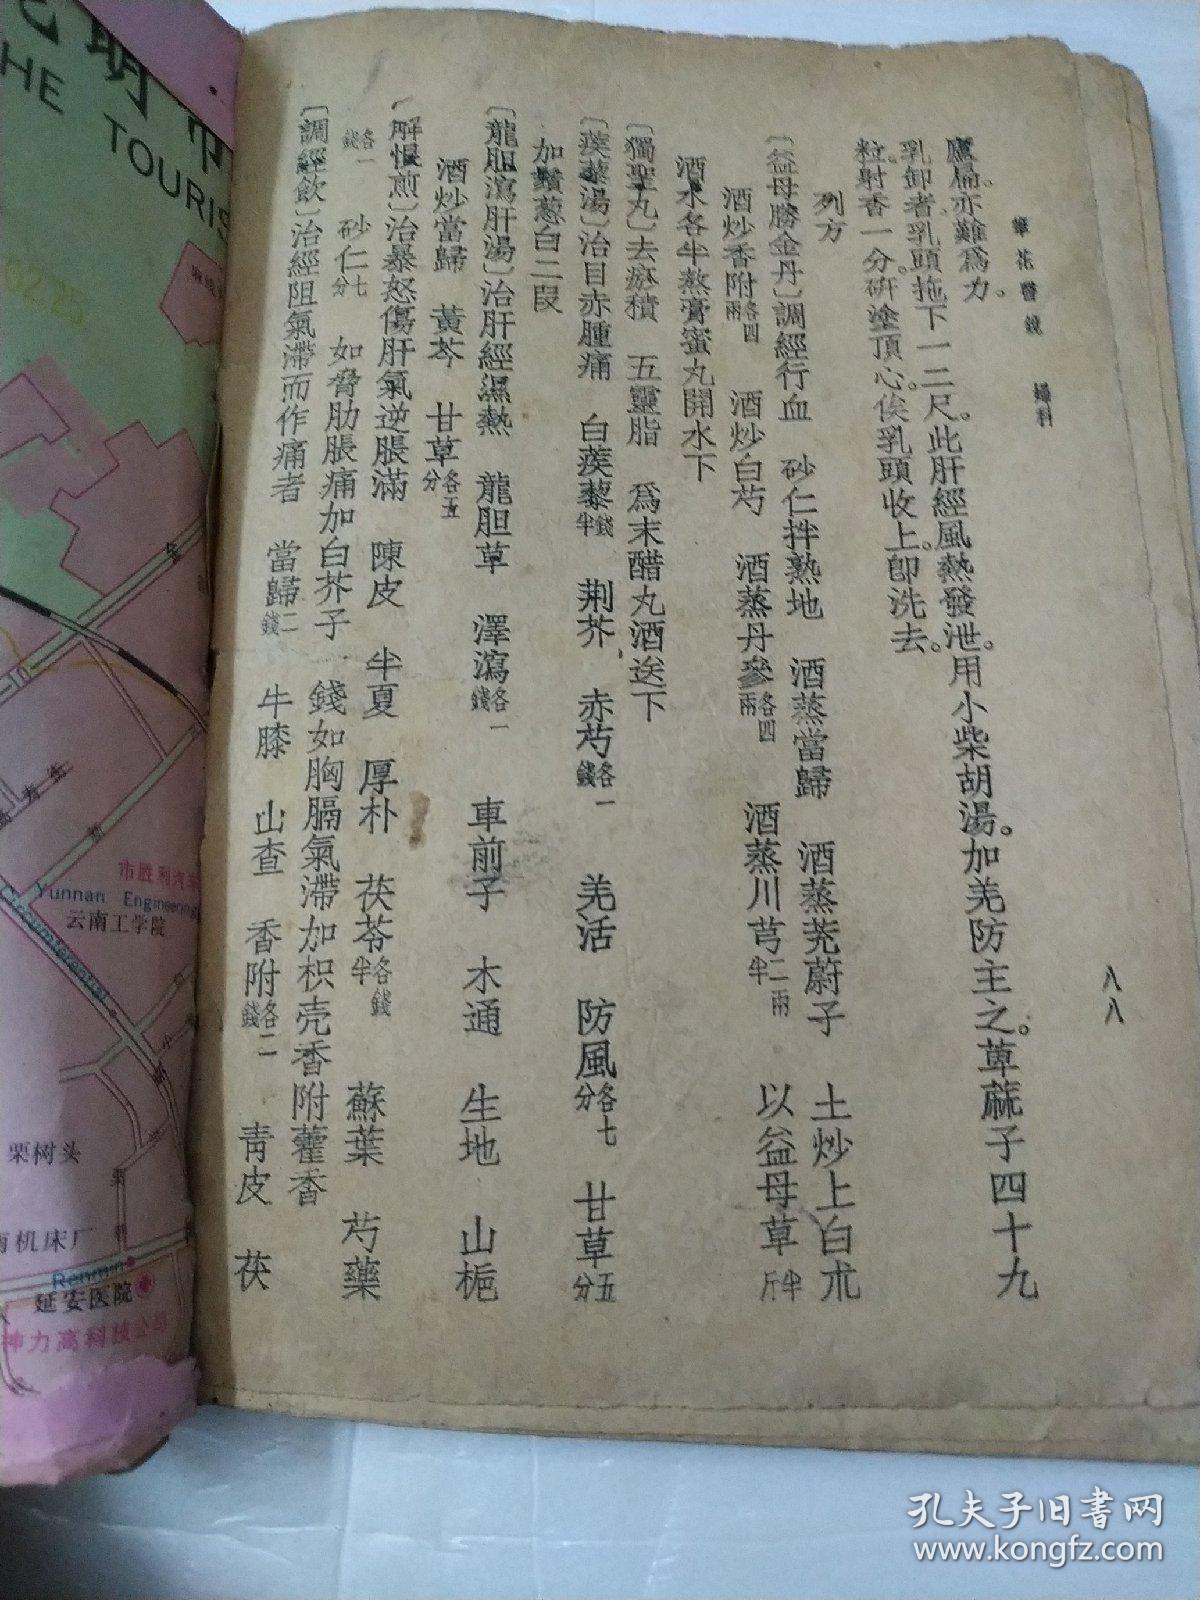 筆花醫鏡　婦科　八八
盧扁。亦難爲力。
乳卸者。乳頭拖下一二尺。此肝經風熱發泄。用小柴胡湯。加羌防主之。萆蔴子四十九
粒。射香一分。研塗頂心。俟乳頭收上。卽洗去。
列方
〔益母勝金丹〕調經行血　砂仁拌熟地　酒蒸當歸　酒蒸茺蔚子　土炒上白朮
酒炒香附各四兩　酒炒白芍　酒蒸丹參各四兩　酒蒸川芎二兩半　以益母草半斤
酒水各半熬膏蜜丸開水下
〔獨聖丸〕去瘀積　五靈脂　爲末醋丸酒送下
〔蒺藜湯〕治目赤腫痛　白蒺藜錢半　荆芥　赤芍各一錢　羌活　防風各七分　甘草五分
加鬚葱白二段
〔龍胆瀉肝湯〕治肝經濕熱　龍胆草　澤瀉各一錢　車前子　木通　生地　山梔
酒炒當歸　黃芩　甘草各五分
〔解恨煎〕治暴怒傷肝氣逆脹滿　陳皮　半夏　厚朴　茯苓各錢半　蘇葉　芍藥
各一錢　砂仁七分　如脅肋脹痛加白芥子一錢如胸膈氣滯加枳壳香附藿香
〔調經飲〕治經阻氣滯而作痛者　當歸二錢　牛膝　山查　香附各二錢　青皮　茯
明市
HE TOURIS
02/25
市胜利汽车
Yunnan Engineering
云南工学院
Circumferential
栗树头
机床厂
Renmin
延安医院
神力高科技公司
孔夫子旧书网
www.kongfz.com